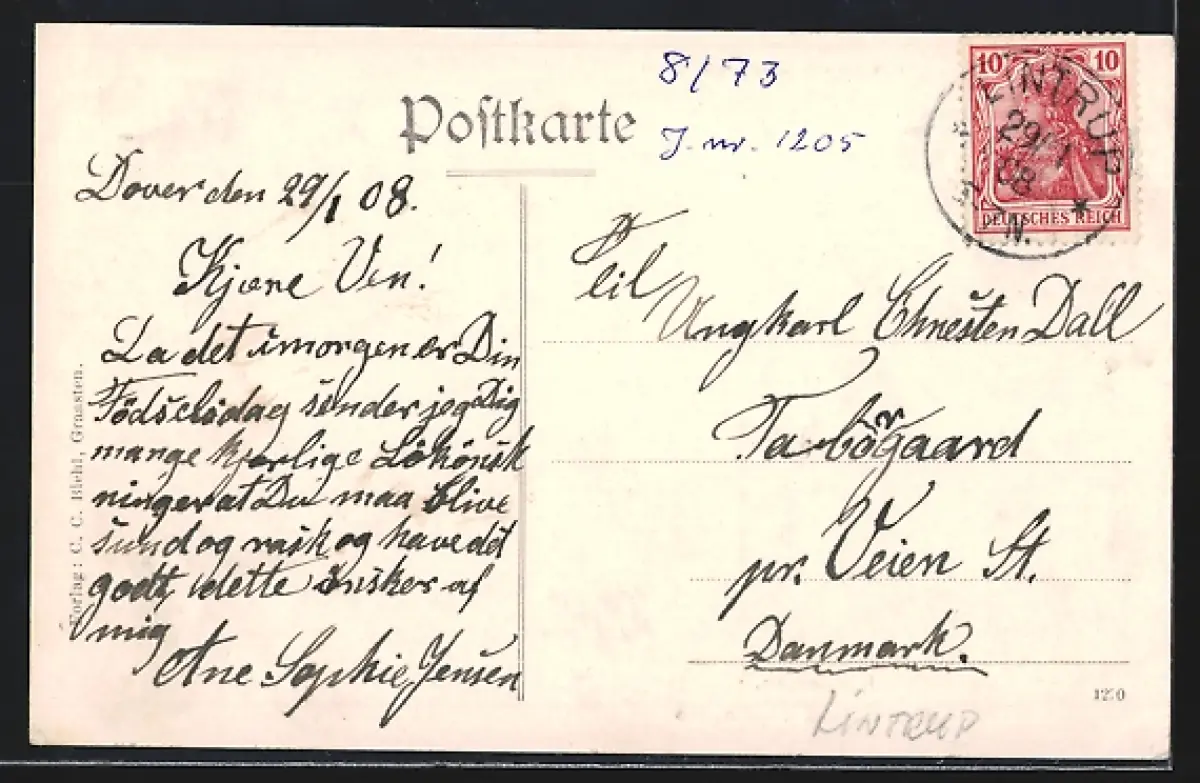 Postkarte
8/73
J. nr. 1205
10 10
DEUTSCHES REICH
LINTRUP
29/1
08
N.
Dover den 29/1 08.
Kjære Ven!
Da det imorgen er Din
Födselsdag sender jeg Dig
mange kjærlige Lökönsk
ninger at Du maa blive
sund og rask og have det
godt, dette önsker af
mig
Ane Sophie Jensen
Til
Ungkarl Chresten Dall
Tabörgaard
pr. Veien St.
Danmark.
LINTRUP
1270
Verlag: C. C. Biehl, Graasten.